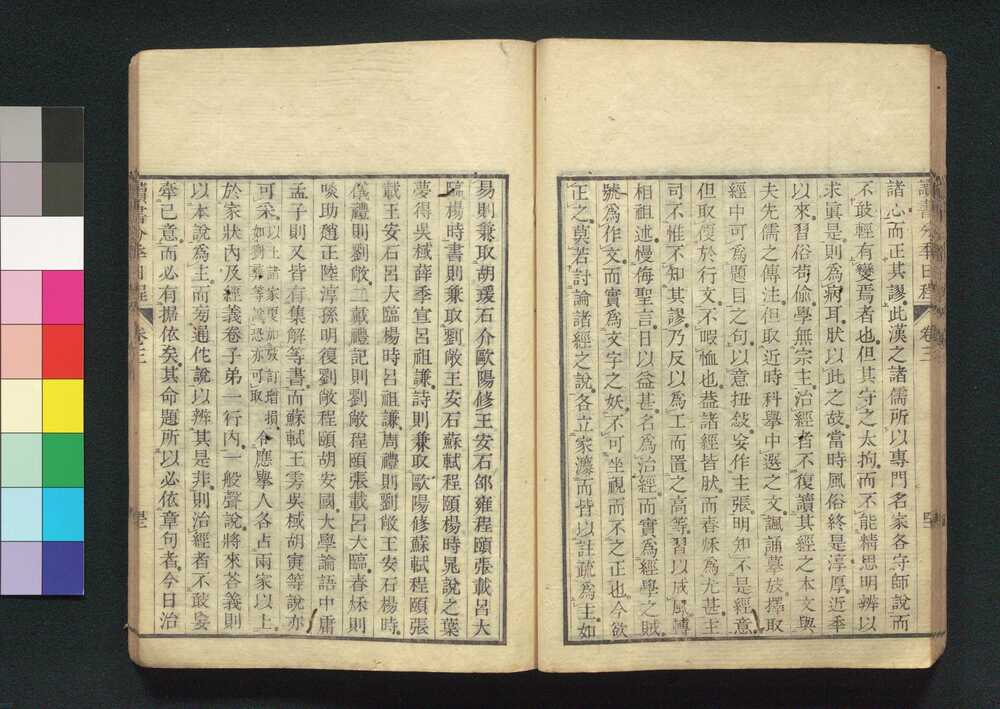 讀書分年日程 卷三
諸心而正其謬此漢之諸儒所以專門名家各守師說而
不敢輕有變焉者也但其守之太拘而不能精思明辨以
求眞是則爲病耳狀以此之故當時風俗終是淳厚近年
以來習俗苟偷學無宗主治經者不復讀其經之本文與
夫先儒之傳注但取近時科舉中選之文諷誦摹放擇取
經中可爲題目之句以意扭捏妄作主張明知不是經意
但取便於行文不暇恤也葢諸經皆狀而春秌爲尤甚主
司不惟不知其謬乃反以爲工而置之高等習以成風慱
相祖述慢侮聖言日以益甚名爲治經而實爲經學之賊
號爲作文而實爲文字之妖不可坐視而不之正也今欲
正之莫若討論諸經之說各立家灋而皆以註疏爲主如
易則兼取胡瑗石介歐陽修王安石邵雍程頤張載呂大
臨楊時書則兼取劉敞王安石蘇軾程頤楊時晁說之葉
夢得吳棫薛季宣呂祖謙詩則兼取歐陽修蘇軾程頤張
載王安石呂大臨楊時呂祖謙周禮則劉敞王安石楊時
儀禮則劉敞二戴禮記則劉敞程頤張載呂大臨春秌則
啖助趙正陸淳孫明復劉敞程頤胡安國大學論語中庸
孟子則又皆有集解等書而蘇軾王雱吳棫胡寅等說亦
可采以上諸家更加攷訂增損如劉彝等說恐亦可取令應舉人各占兩家以上
於家狀內及經義卷子弟一行內一般聲說將來荅義則
以本說爲主而旁通佗說以辨其是非則治經者不敢妄
牽己意而必有據依矣其命題所以必依章句者今日治
讀書分年日程 卷三